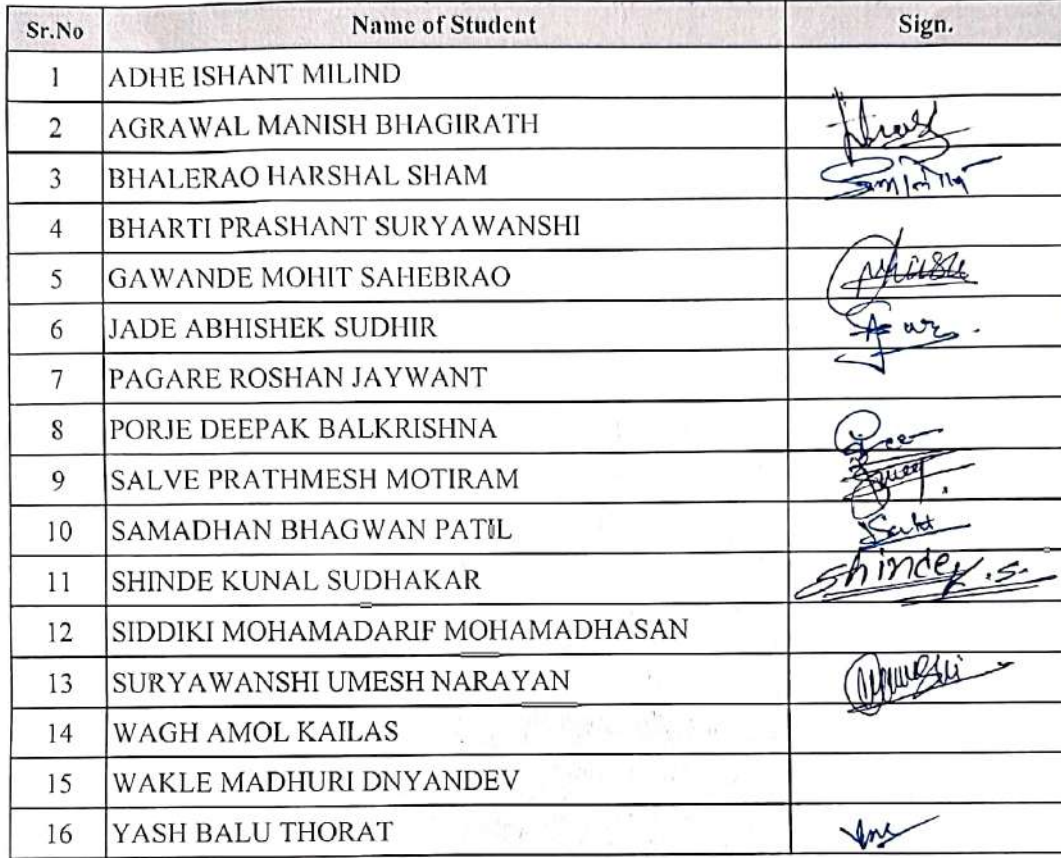 Sr.No Name of Student Sign.
1 ADHE ISHANT MILIND
2 AGRAWAL MANISH BHAGIRATH
3 BHALERAO HARSHAL SHAM
4 BHARTI PRASHANT SURYAWANSHI
5 GAWANDE MOHIT SAHEBRAO
6 JADE ABHISHEK SUDHIR
7 PAGARE ROSHAN JAYWANT
8 PORJE DEEPAK BALKRISHNA
9 SALVE PRATHMESH MOTIRAM
10 SAMADHAN BHAGWAN PATIL
11 SHINDE KUNAL SUDHAKAR Shinde K.S.
12 SIDDIKI MOHAMADARIF MOHAMADHASAN
13 SURYAWANSHI UMESH NARAYAN
14 WAGH AMOL KAILAS
15 WAKLE MADHURI DNYANDEV
16 YASH BALU THORAT